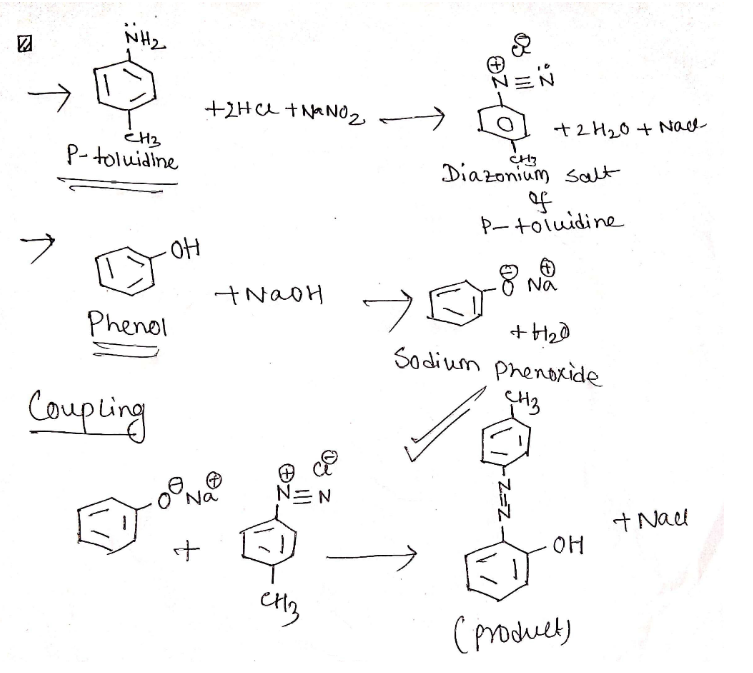 N̈H₂
→
CH₃
P-toluidine
+2HCl + NaNO₂ →
Cl⊖
⊕
N≡N̈
CH₃
+2H₂O + NaCl
Diazonium salt
of
P-toluidine
→
OH
Phenol
+ NaOH →
O⊖ Na⊕
+ H₂O
Sodium Phenoxide
Coupling
O⊖Na⊕
+
⊕ Cl⊖
N≡N
CH₃
→
CH₃
N=N
OH
+ NaCl
(product)